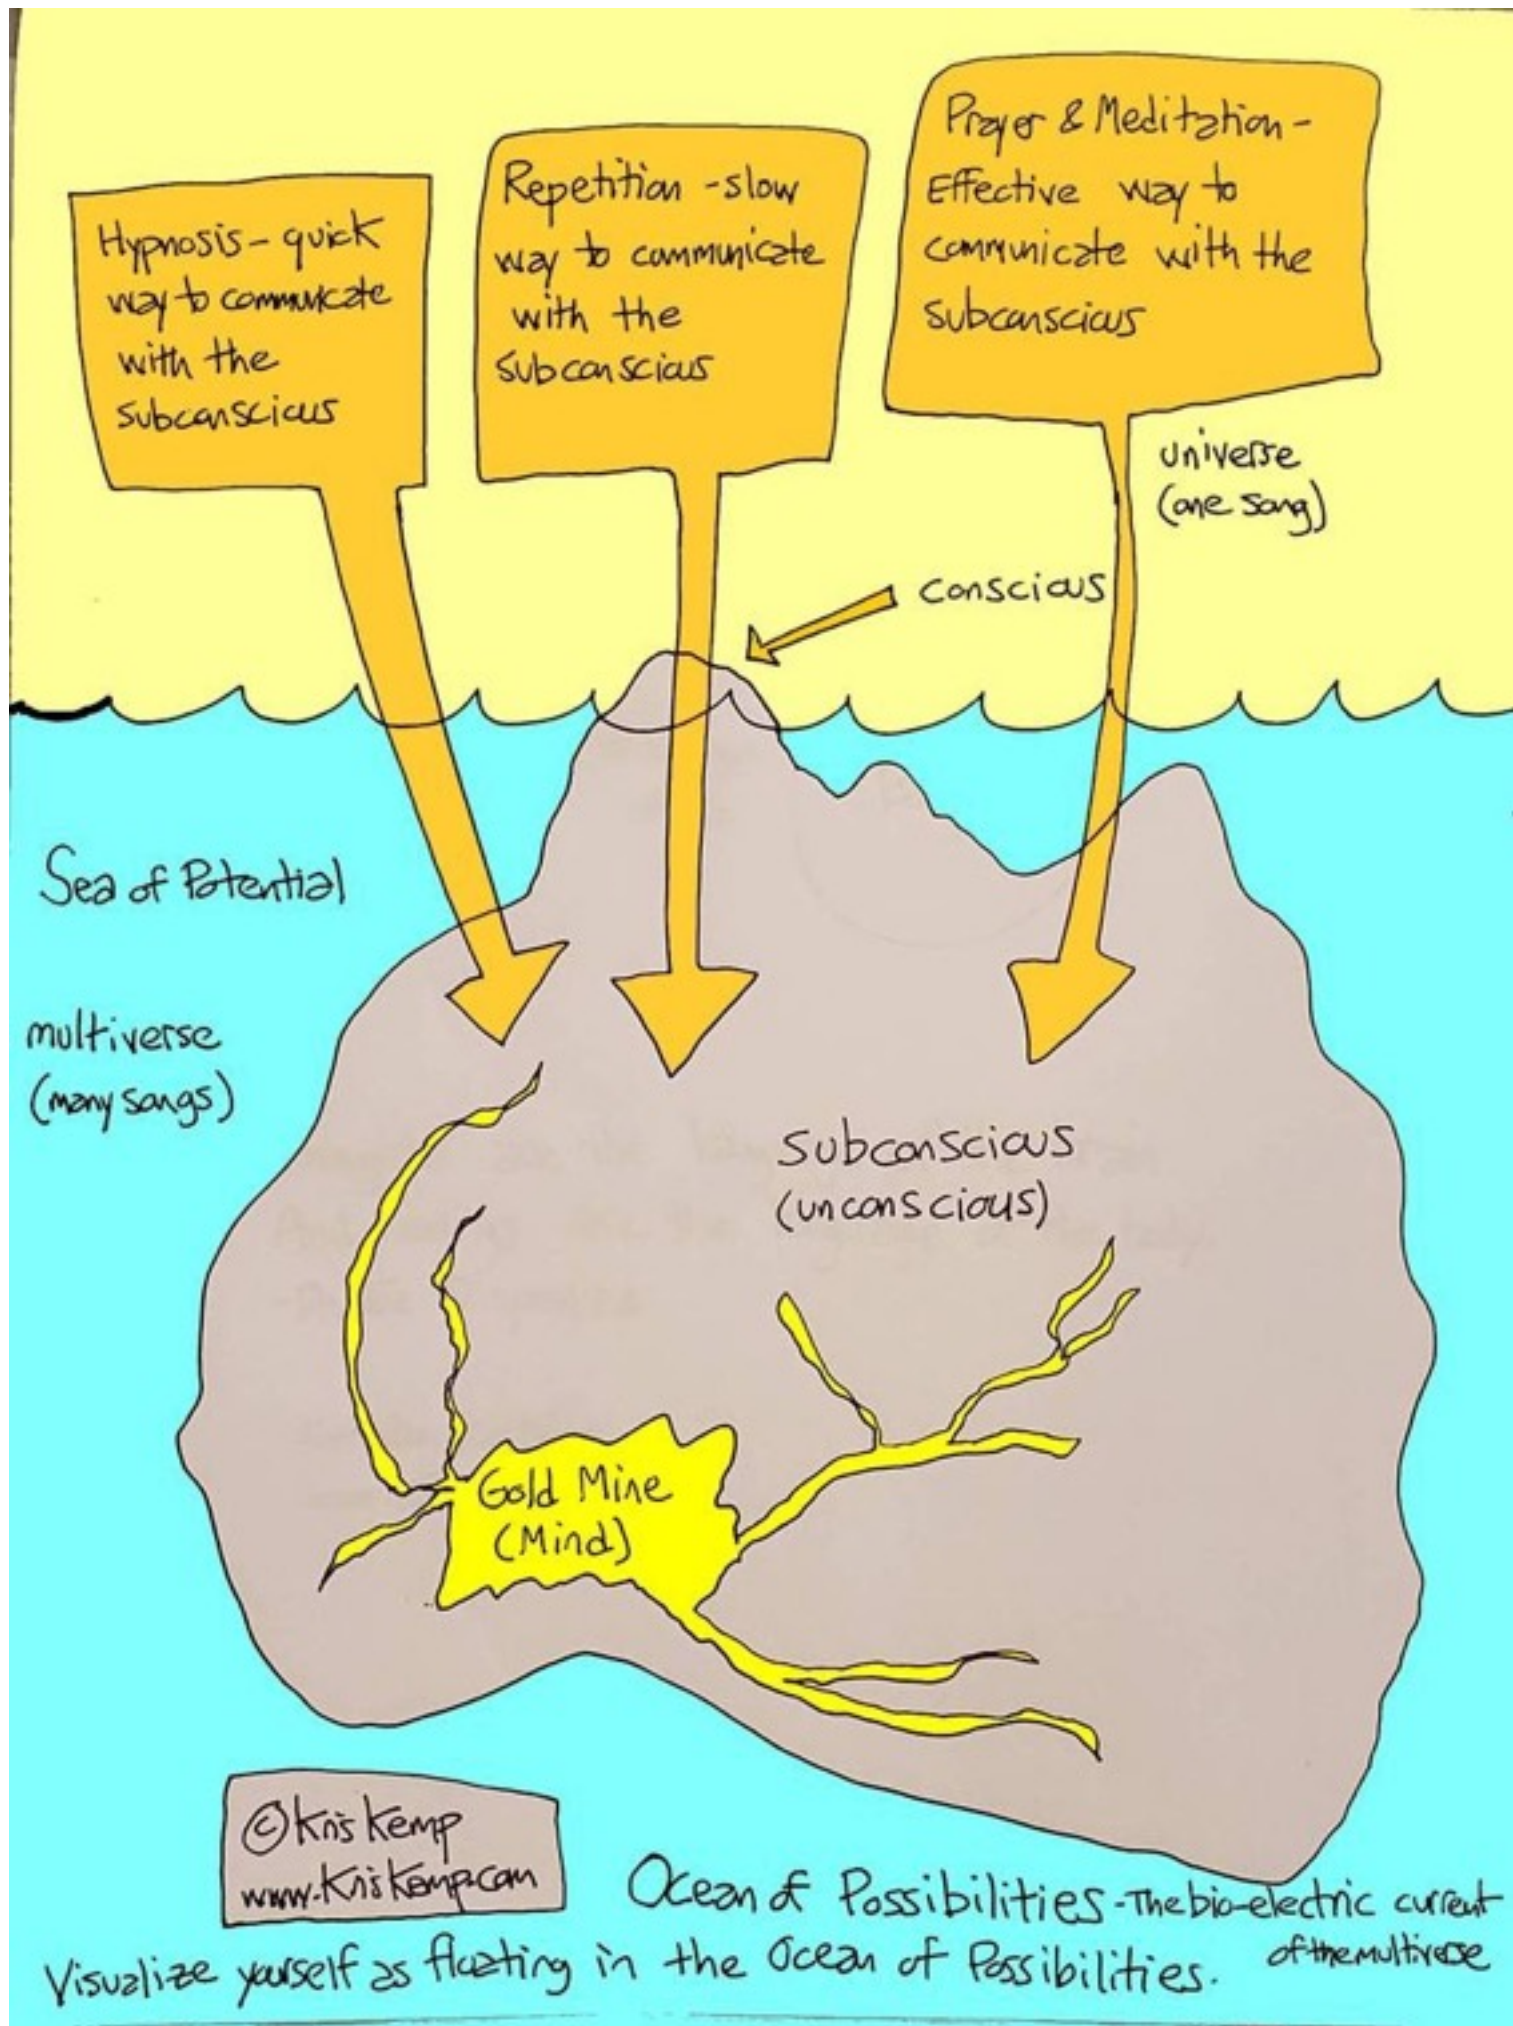 Hypnosis - quick
way to communicate
with the
subconscious
Repetition - slow
way to communicate
with the
subconscious
Prayer & Meditation -
Effective way to
communicate with the
subconscious
universe
(one song)
conscious
Sea of Potential
multiverse
(many songs)
subconscious
(unconscious)
Gold Mine
(Mind)
©Kris Kemp
www.KrisKemp.com
Ocean of Possibilities - The bio-electric current
of the multiverse
Visualize yourself as floating in the Ocean of Possibilities.